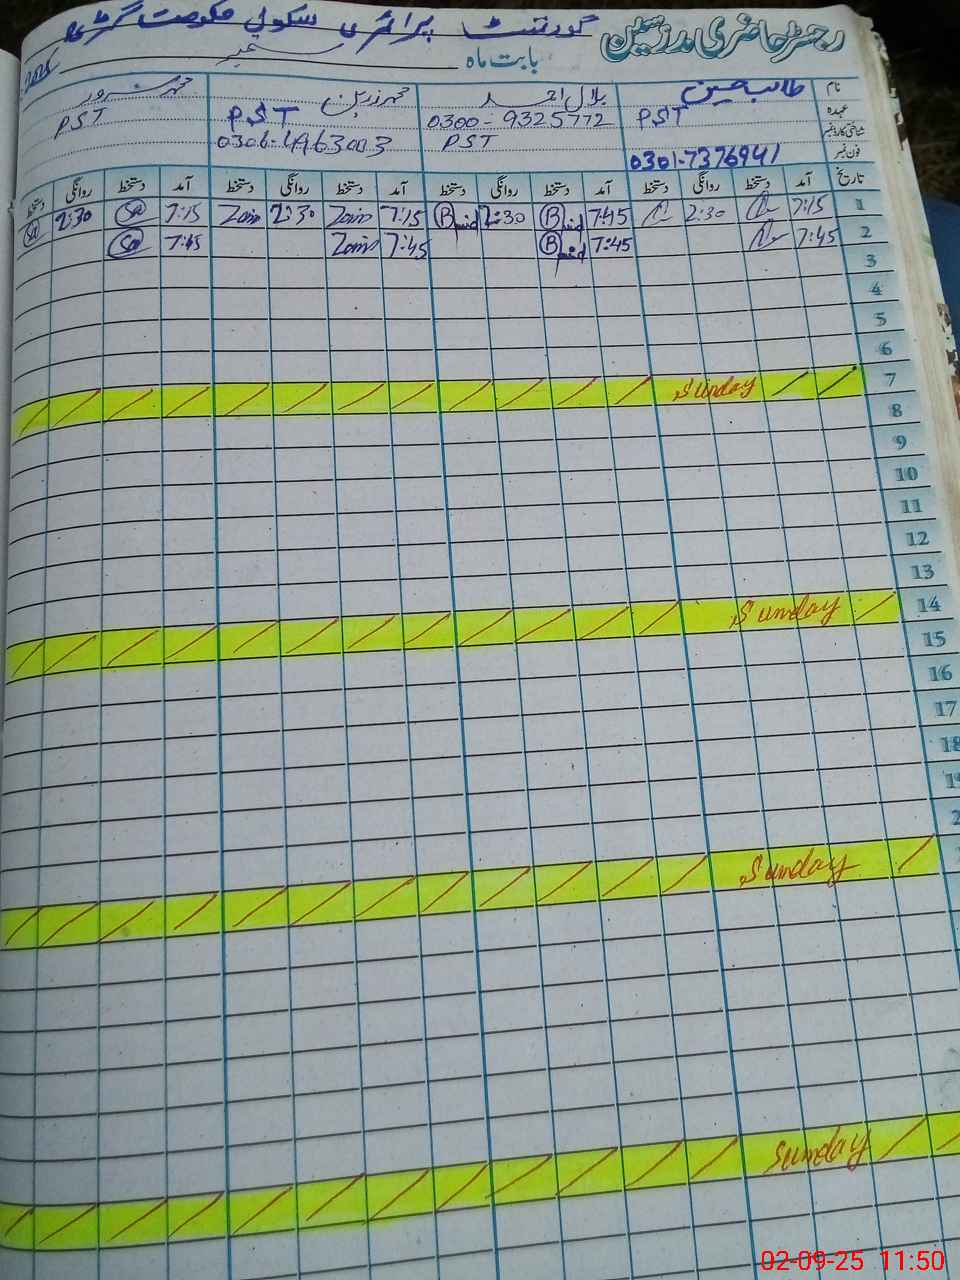 رجسٹر حاضری مدرسین گورنمنٹ پرائمری سکول حکومت گڑھی
بابت ماہ ستمبر 2025
نام طالب حسین بلال احمد محمد زرین محمد سرور
عہدہ PST 0300-9325772 PST PST
شناختی کارڈ نمبر PST 0306-4963003
فون نمبر 0301-7376941
تاریخ آمد دستخط روانگی دستخط آمد دستخط روانگی دستخط آمد دستخط روانگی دستخط آمد دستخط روانگی دستخط
1 7:15 2:30 7:45 Blid 2:30 Blid 7:15 Zain 2:30 Zain 7:15 Sa 2:30 Sa
2 7:45 7:45 Blid 7:45 Zain 7:45 Sa
3
4
5
6
7 Sunday
8
9
10
11
12
13
14 Sunday
15
16
17
18
Sunday
Sunday
02-09-25 11:50